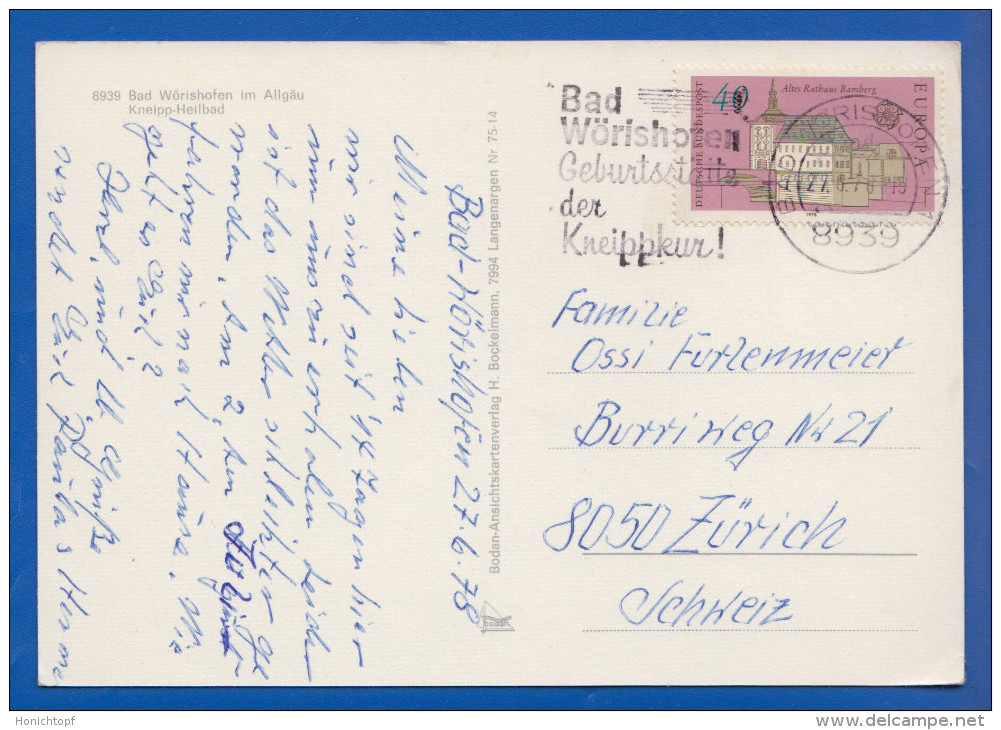 8939 Bad Wörishofen im Allgäu
Kneipp-Heilbad
Bad-Wörishofen 27.6.78
Meine lieben
wir sind seit 14 Tagen hier
um uns zu erholen leider
ist das Wetter schlechter ge
worden. Am 2,
fahren wir nach Hause. Wie
geht es Euch?
Herzl. und l. Grüße
sendet Euch Paula & Herma
Bodan-Ansichtskartenverlag H. Bockelmann, 7994 Langenargen Nr 75-14
bodan
Bad
Wörishofen
Geburtsstätte
der
Kneippkur!
40
Altes Rathaus Bamberg
DEUTSCHE BUNDESPOST
EUROPA
1978
BAD WÖRISHOFEN 1
8939
Familie
Ossi Furlenmeier
Burriweg Nr 21
8050 Zürich
Schweiz
Honichtopf
www.delcampe.net